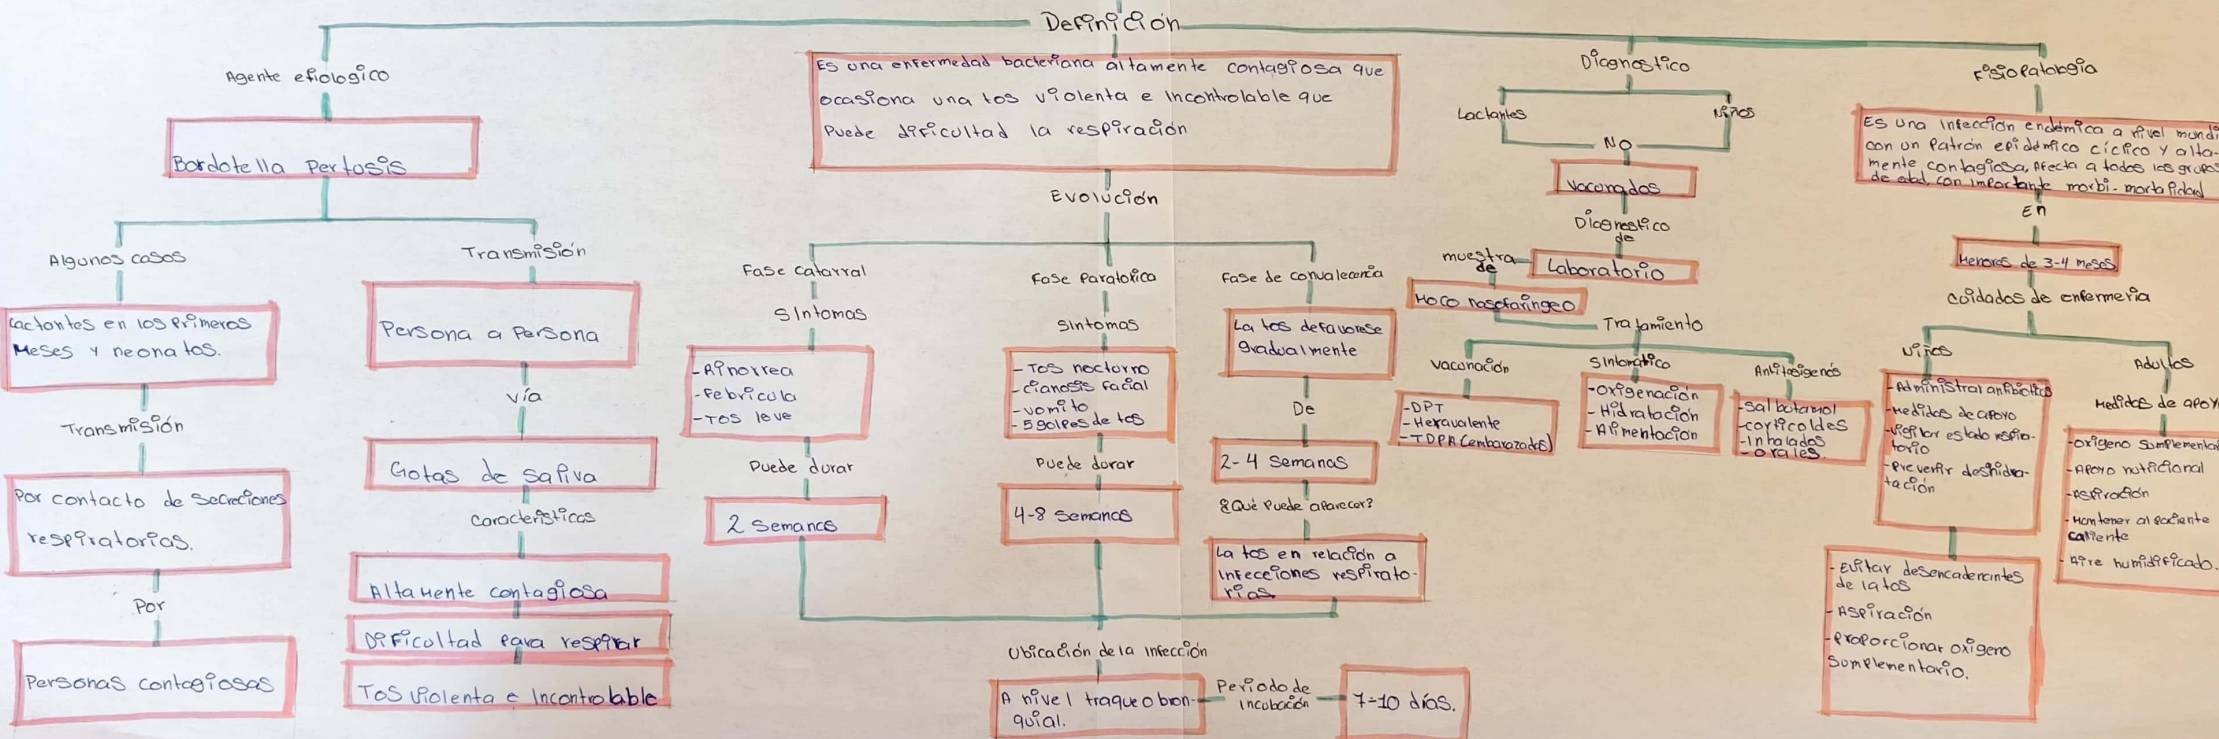 Definición
Agente efiologico
Bordotella Pertosis
Algunos casos
Lactantes en los Primeros
Meses y neonatos.
Transmisión
Por contacto de secreciones
respiratorias.
Por
Personas contagiosas
Transmisión
Persona a Persona
vía
Gotas de saliva
Características
Altamente contagiosa
Dificultad para respirar
Tos violenta e Incontrolable
Es una enfermedad bacteriana altamente contagiosa que
ocasiona una tos violenta e Incontrolable que
Puede dificultad la respiración
Evolución
Fase catarral
Síntomas
-Rinorrea
-Febricula
-Tos leve
Puede durar
2 semanas
Fase Paratoxica
Síntomas
- Tos nocturno
- cianosis facial
- vomito
- 5 golpes de tos
Puede durar
4-8 semanas
Fase de convalecencia
La tos defavorese
gradualmente
De
2-4 semanas
¿Qué Puede aparecer?
La tos en relación a
Infecciones respirato-
rias
Ubicación de la Infección
A nivel traqueobron-
quial.
Periodo de
incubación
7-10 días.
Diagnostico
Lactantes
Niños
No
Vacunados
Diagnostico
de
Laboratorio
muestra
de
Moco nasofaringeo
Tratamiento
Vacunación
-DPT
-Hexavalente
-TDPA (embarazadas)
Sintomático
-Oxigenación
- Hidratación
- Alimentación
Antitosigenos
-Salbutamol
-corticoides
-Inhalados
-orales.
Fisiopatología
Es una Infección endémica a nivel mundi
con un Patrón epidémico cíclico y alta-
mente contagiosa, Afecta a todos los grupos
de edad, con importante morbi-mortalidad
En
Menores de 3-4 meses
Cuidados de enfermeria
Niños
-Administral antibiotico
-Medidas de apoyo
-Vigilar estado respira-
torio
-Prevenir deshidra-
tación
- Evitar desencadenantes
de la tos
- Aspiración
-Proporcionar oxigeno
Sumplementario.
Adultos
Medidas de apoy
-oxigeno Sumplementa
-Apoyo nutricional
-Aspiración
- Mantener al paciente
caliente
Aire humidificado.